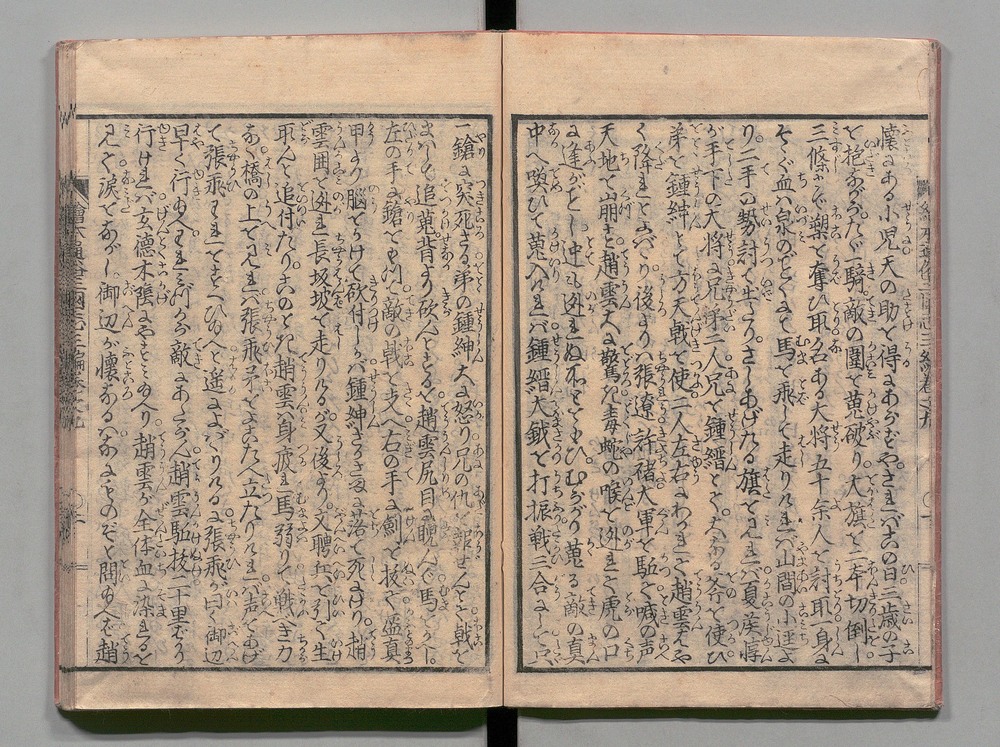 懐にある小児天の助を得るにあらずや されバこの日二歳の子
を抱ながらたゞ一騎敵の囲を蒐破り大旗を二本切倒し
三條まで槊を奪ひ取名ある大将五十余人を討取一身に
そゝぐ血ハ泉のごとくにて馬を乗して走りけれバ山間の小逕よ
り二手の勢討て出たりさしあげたる旗を見れバ夏侯惇
が手下の大将に兄弟二人兄を鍾縉とて大なる斧を使ひ
弟を鍾紳とて方天戟を使二人左右にわかれて趙雲はや
く降れとよバゝり後よりハ張遼許褚大軍を駈て喊の声
天地も崩ると趙雲大に驚き毒蛇の喉を逃れて虎の口
に逢がごとし迚も逃れぬ所といとひむかふより蒐る敵の真
中へ喚ひて蒐入けれバ鍾縉大鉞を打振戦三合にして只
一鎗に突死さる弟の鍾紳大に怒り兄の仇 報せんと戟を
まハして追蒐背より砍んとする趙雲尻目に睨んで馬をかへし
左の手に鎗をもつて敵の戟を支へ右の手に剣を抜て盔真
甲より脳をかけて砍付しかバ鍾紳まつさかさまに落て死にけり趙
雲囲を逃れて長坂坡を走りけるが又後より文聘兵を引て生
取んと追付たりこのとき趙雲ハ身疲れ馬弱りて戦べき力
なし橋の上を見れバ張飛矛をよこたへ立たりけれバ一声をあげ
て張飛われを一てをくへひ給へと遥によバゝりける張飛が曰く御辺
早く行給へわれこゝにて敵にあたらん趙雲駈抜二十里ばかり
行けれバ玄徳木蔭にやすミ給へり趙雲が全体血に染れるを
見て涙をながし御辺が懐なるハなにものぞと問給へバ趙
繪本通俗三國志三編巻之九
繪本通俗三國志三編巻之九